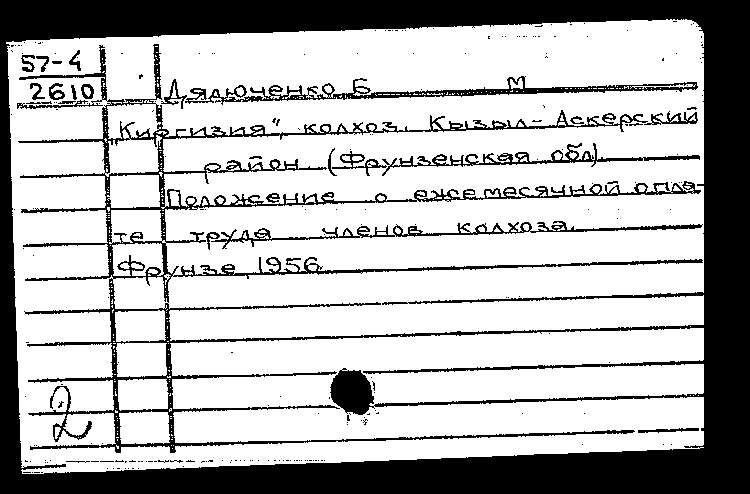 57-4
2610
Дялюченко Б М
„Киргизия", колхоз. Кызыл-Аскерский
район (Фрунзенская обл).
Положение о ежемесячной опла-
те труда членов колхоза.
Фрунзе, 1956
2